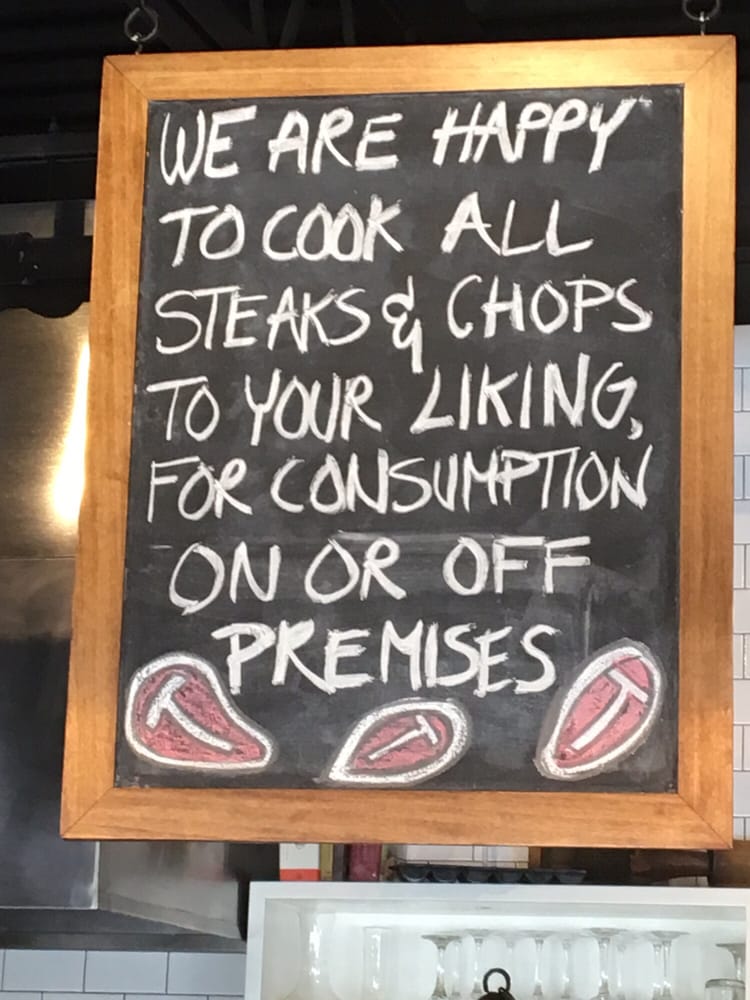 WE ARE HAPPY
TO COOK ALL
STEAKS & CHOPS
TO YOUR LIKING,
FOR CONSUMPTION
ON OR OFF
PREMISES